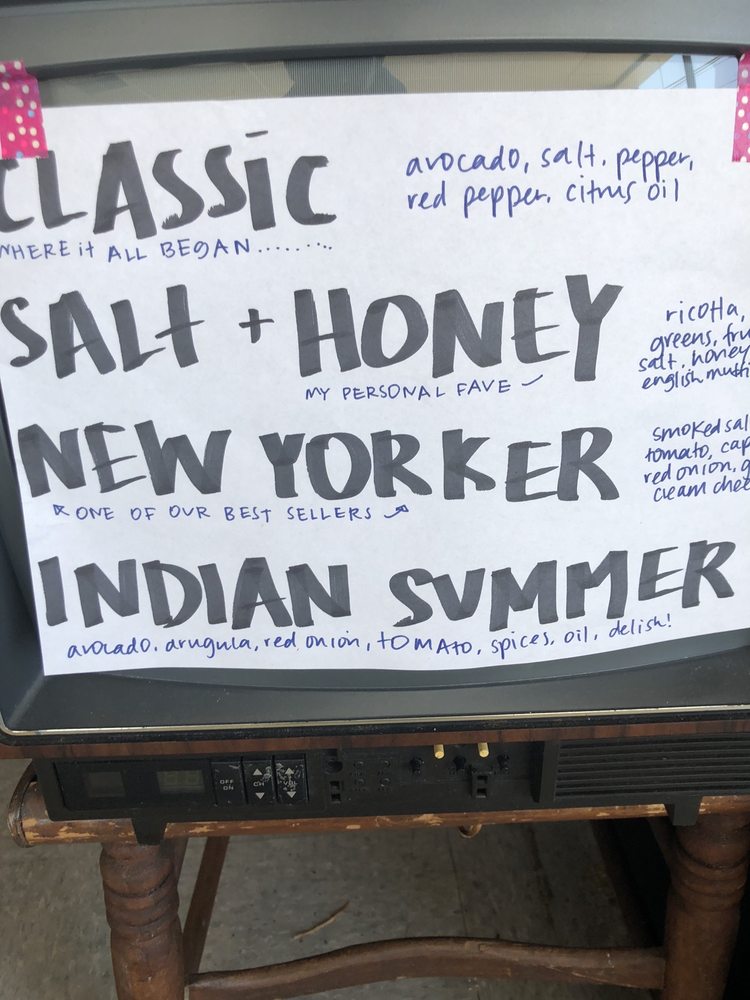 CLASSIC
avocado, salt, pepper,
red pepper, citrus oil
WHERE it ALL BEGAN........
SALT + HONEY
ricotta,
greens,
salt, honey
english
MY PERSONAL FAVE
NEW YORKER
smoked
tomato,
red onion,
cream
ONE OF OUR BEST SELLERS
INDIAN SUMMER
avocado, arugula, red onion, TOMATO, spices, oil, delish!
OFF
ON
CH
VOL